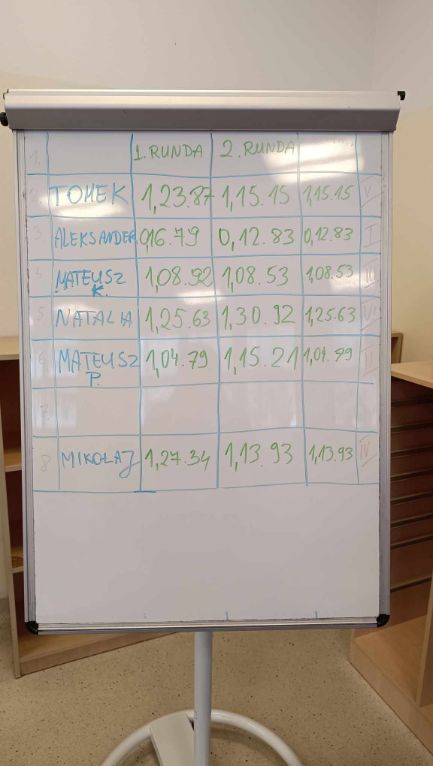 1. 1. RUNDA 2. RUNDA
2 TOMEK 1,23.87 1,15.15 1,15.15 V
3 ALEKSANDER 0,16.79 0,12.83 0,12.83 I
4 MATEUSZ K. 1,08.92 1,08.53 1,08.53 III
5 NATALIA 1,25.63 1,30.92 1,25.63 VI
6 MATEUSZ P. 1,04.79 1,15.21 1,04.79 II
7
8 MIKOŁAJ 1,27.34 1,13.93 1,13.93 IV